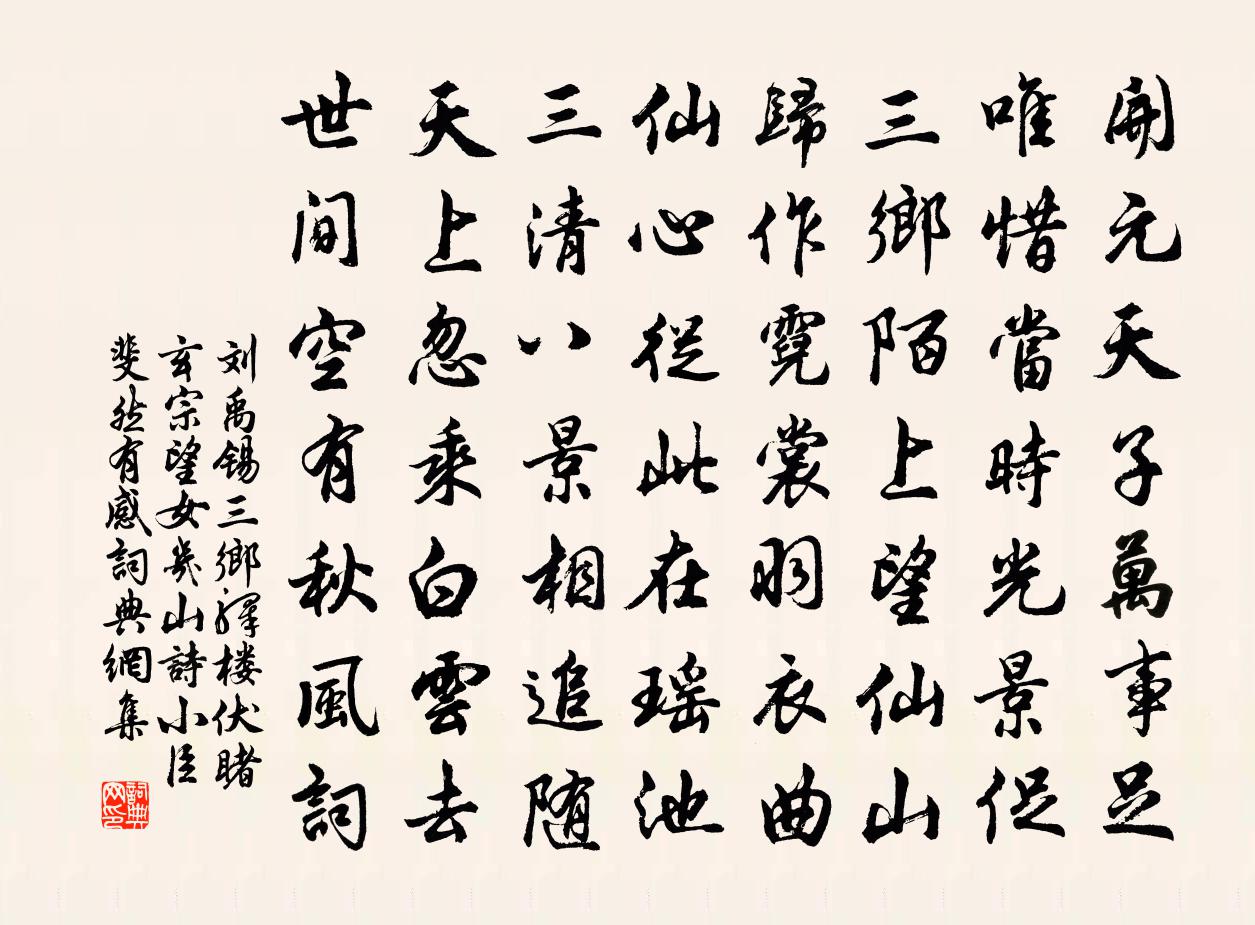 開元天子萬事足
唯惜當時光景促
三鄉陌上望仙山
歸作霓裳羽衣曲
仙心從此在瑶池
三清八景相追随
天上忽乘白雲去
世間空有秋風詞
刘禹锡三鄉驛楼伏睹
玄宗望女几山詩小臣
斐然有感詞典網集
詞典
网印